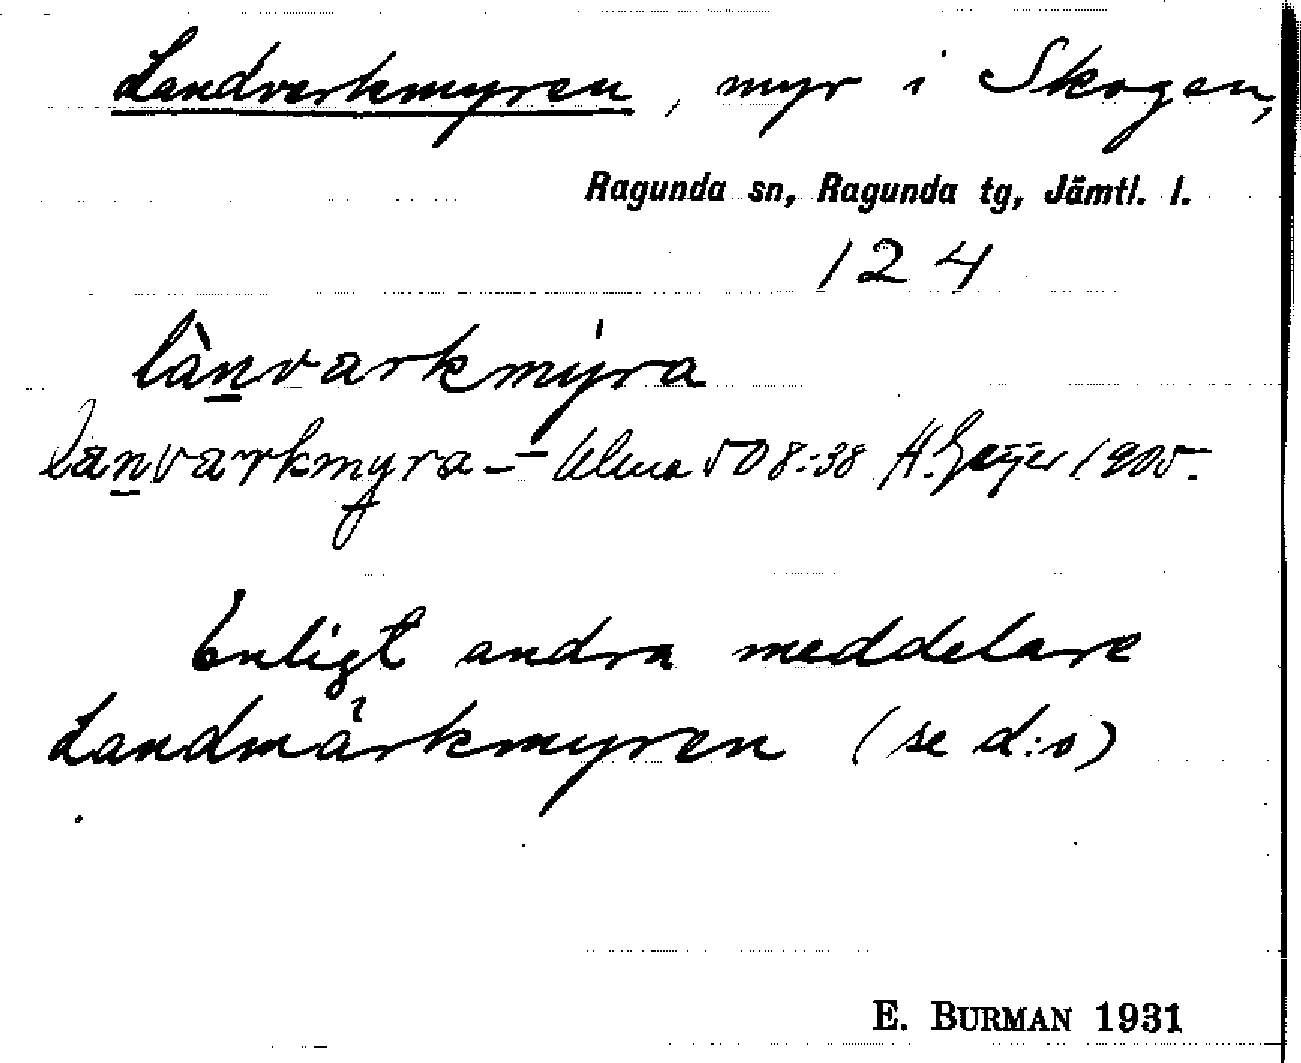 Landverkmyren, myr i Skogen,
Ragunda sn, Ragunda tg, Jämtl. l.
124
lànvarkmýra
lanvarkmyra — Ulma 508:38 H. Geijer 1905.
Enligt andra meddelare
Landmärkmyren (se d:o)
E. BURMAN 1931